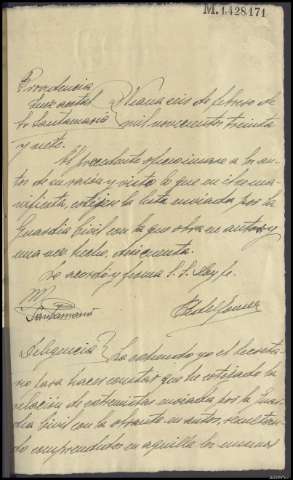 M.1.428.171
Providencia
Juez
Sr Santamaria } seis de febrero de
mil novecientos treinta
y siete.
El precedente oficio unase a los au-
tos de su razon y visto lo que en el se ma-
nifiesta, cotejese la lista enviada por la
Guardia Civil con la que obra en autos y
una vez hecho, dese cuenta.
Lo acordo y firma S.S. Doy fe.
Mº
Santamaria
Diligencia } La extiendo yo el Secreta-
rio para hacer constar que he cotejado la
relacion de extremistas enviada por la Guar-
dia Civil con la obrante en autos, resultan-
do comprendidos en aquella los mismos